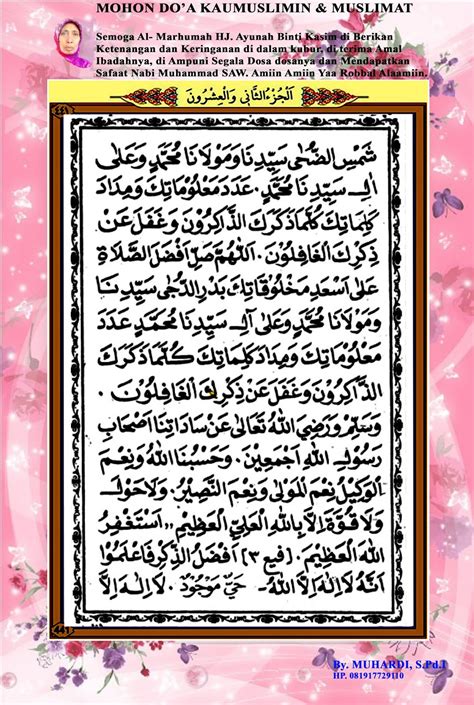 MOHON DO'A KAUMUSLIMIN & MUSLIMAT
Semoga Al- Marhumah HJ. Ayunah Binti Kasim di Berikan
Ketenangan dan Keringanan di dalam kubur, di terima Amal
Ibadahnya, di Ampuni Segala Dosa dosanya dan Mendapatkan
Safaat Nabi Muhammad SAW. Amiin Amiin Yaa Robbal Alaamiin.
اَلْجُزْءُ الثَّانِي وَالْعِشْرُونَ
٤٤١
شَمْسِ الضُّحَى سَيِّدِنَا وَمَوْلَانَا مُحَمَّدٍ وَعَلَى
اٰلِ سَيِّدِنَا مُحَمَّدٍ. عَدَدَ مَعْلُوْمَاتِكَ وَمِدَادَ
كَلِمَاتِكَ كُلَّمَا ذَكَرَكَ الذَّاكِرُوْنَ وَغَفَلَ عَنْ
ذِكْرِكَ الْغَافِلُوْنَ. اَللّٰهُمَّ صَلِّ اَفْضَلَ الصَّلَاةِ
عَلَى اَسْعَدِ مَخْلُوْقَاتِكَ بَدْرِ الدُّجَى سَيِّدِنَا
وَمَوْلَانَا مُحَمَّدٍ وَعَلَى اٰلِ سَيِّدِنَا مُحَمَّدٍ عَدَدَ
مَعْلُوْمَاتِكَ وَمِدَادَ كَلِمَاتِكَ كُلَّمَا ذَكَرَكَ
الذَّاكِرُوْنَ وَغَفَلَ عَنْ ذِكْرِكَ الْغَافِلُوْنَ .
وَسَلِّمْ وَرَضِيَ اللّٰهُ تَعَالَى عَنْ سَادَاتِنَا اَصْحَابِ
رَسُوْلِ اللّٰهِ اَجْمَعِيْنَ. وَحَسْبُنَا اللّٰهُ وَنِعْمَ
الْوَكِيْلُ نِعْمَ الْمَوْلَى وَنِعْمَ النَّصِيْرُ. وَلَاحَوْلَ
وَلَا قُوَّةَ اِلَّا بِاللّٰهِ الْعَلِيِّ الْعَظِيْمِ ,, اَسْتَغْفِرُ
اللّٰهَ الْعَظِيْمَ. [فيع ٣] اَفْضَلُ الذِّكْرِ فَاعْلَمُوْا
اَنَّهُ لَا اِلٰهَ اِلَّا اللّٰهُ - حَيٌّ مَوْجُوْدٌ . لَا اِلٰهَ اِلَّا
٤٤١
By. MUHARDI, S.Pd.I
HP. 081917729110